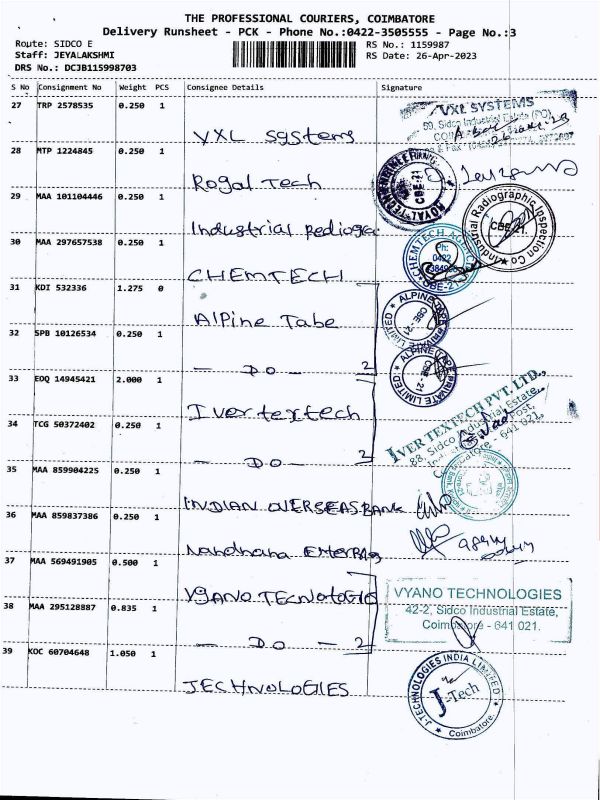 THE PROFESSIONAL COURIERS, COIMBATORE
Delivery Runsheet - PCK - Phone No.:0422-3505555 - Page No.:3
Route: SIDCO E
RS No.: 1159987
Staff: JEYALAKSHMI
RS Date: 26-Apr-2023
DRS No.: DCJB115998703
S No Consignment No Weight PCS Consignee Details Signature
27 TRP 2578535 0.250 1
VXL SYSTEMS
59, Sidco Industrial Estate (PO)
VXL Systems
28 MTP 1224845 0.250 1
Rogal Tech
29 MAA 101104446 0.250 1
Industrial Rediogra
Industrial Radiographic Inspection Co
CBE-21
30 MAA 297657538 0.250 1
CHEMTECH
CHEMTECH AGENC
Ph:
0422
CBE-21
31 KDI 532336 1.275 0
Alpine Tabe
ALPINE TAPE PRIVATE LIMITED
CBE-21
32 SPB 10126534 0.250 1
- DO - 2
ALPINE TAPE PRIVATE LIMITED
CBE-21
33 EDQ 14945421 2.000 1
Ivertextech
IVER TEXTECH PVT. LTD.,
88, Sidco Industrial Estate,
641 021.
34 TCG 50372402 0.250 1
- DO - 2
35 MAA 859904225 0.250 1
INDIAN OVERSEAS BANK
36 MAA 859837386 0.250 1
Nandhana
37 MAA 569491905 0.500 1
VYANO TECNOLOGIE
VYANO TECHNOLOGIES
42-2, Sidco Industrial Estate,
Coimbatore - 641 021.
38 MAA 295128887 0.835 1
- DO - 2
39 KOC 60704648 1.050 1
JECHNOLOGIES
J-TECHNOLOGIES INDIA LIMITED
J-Tech
Coimbatore.